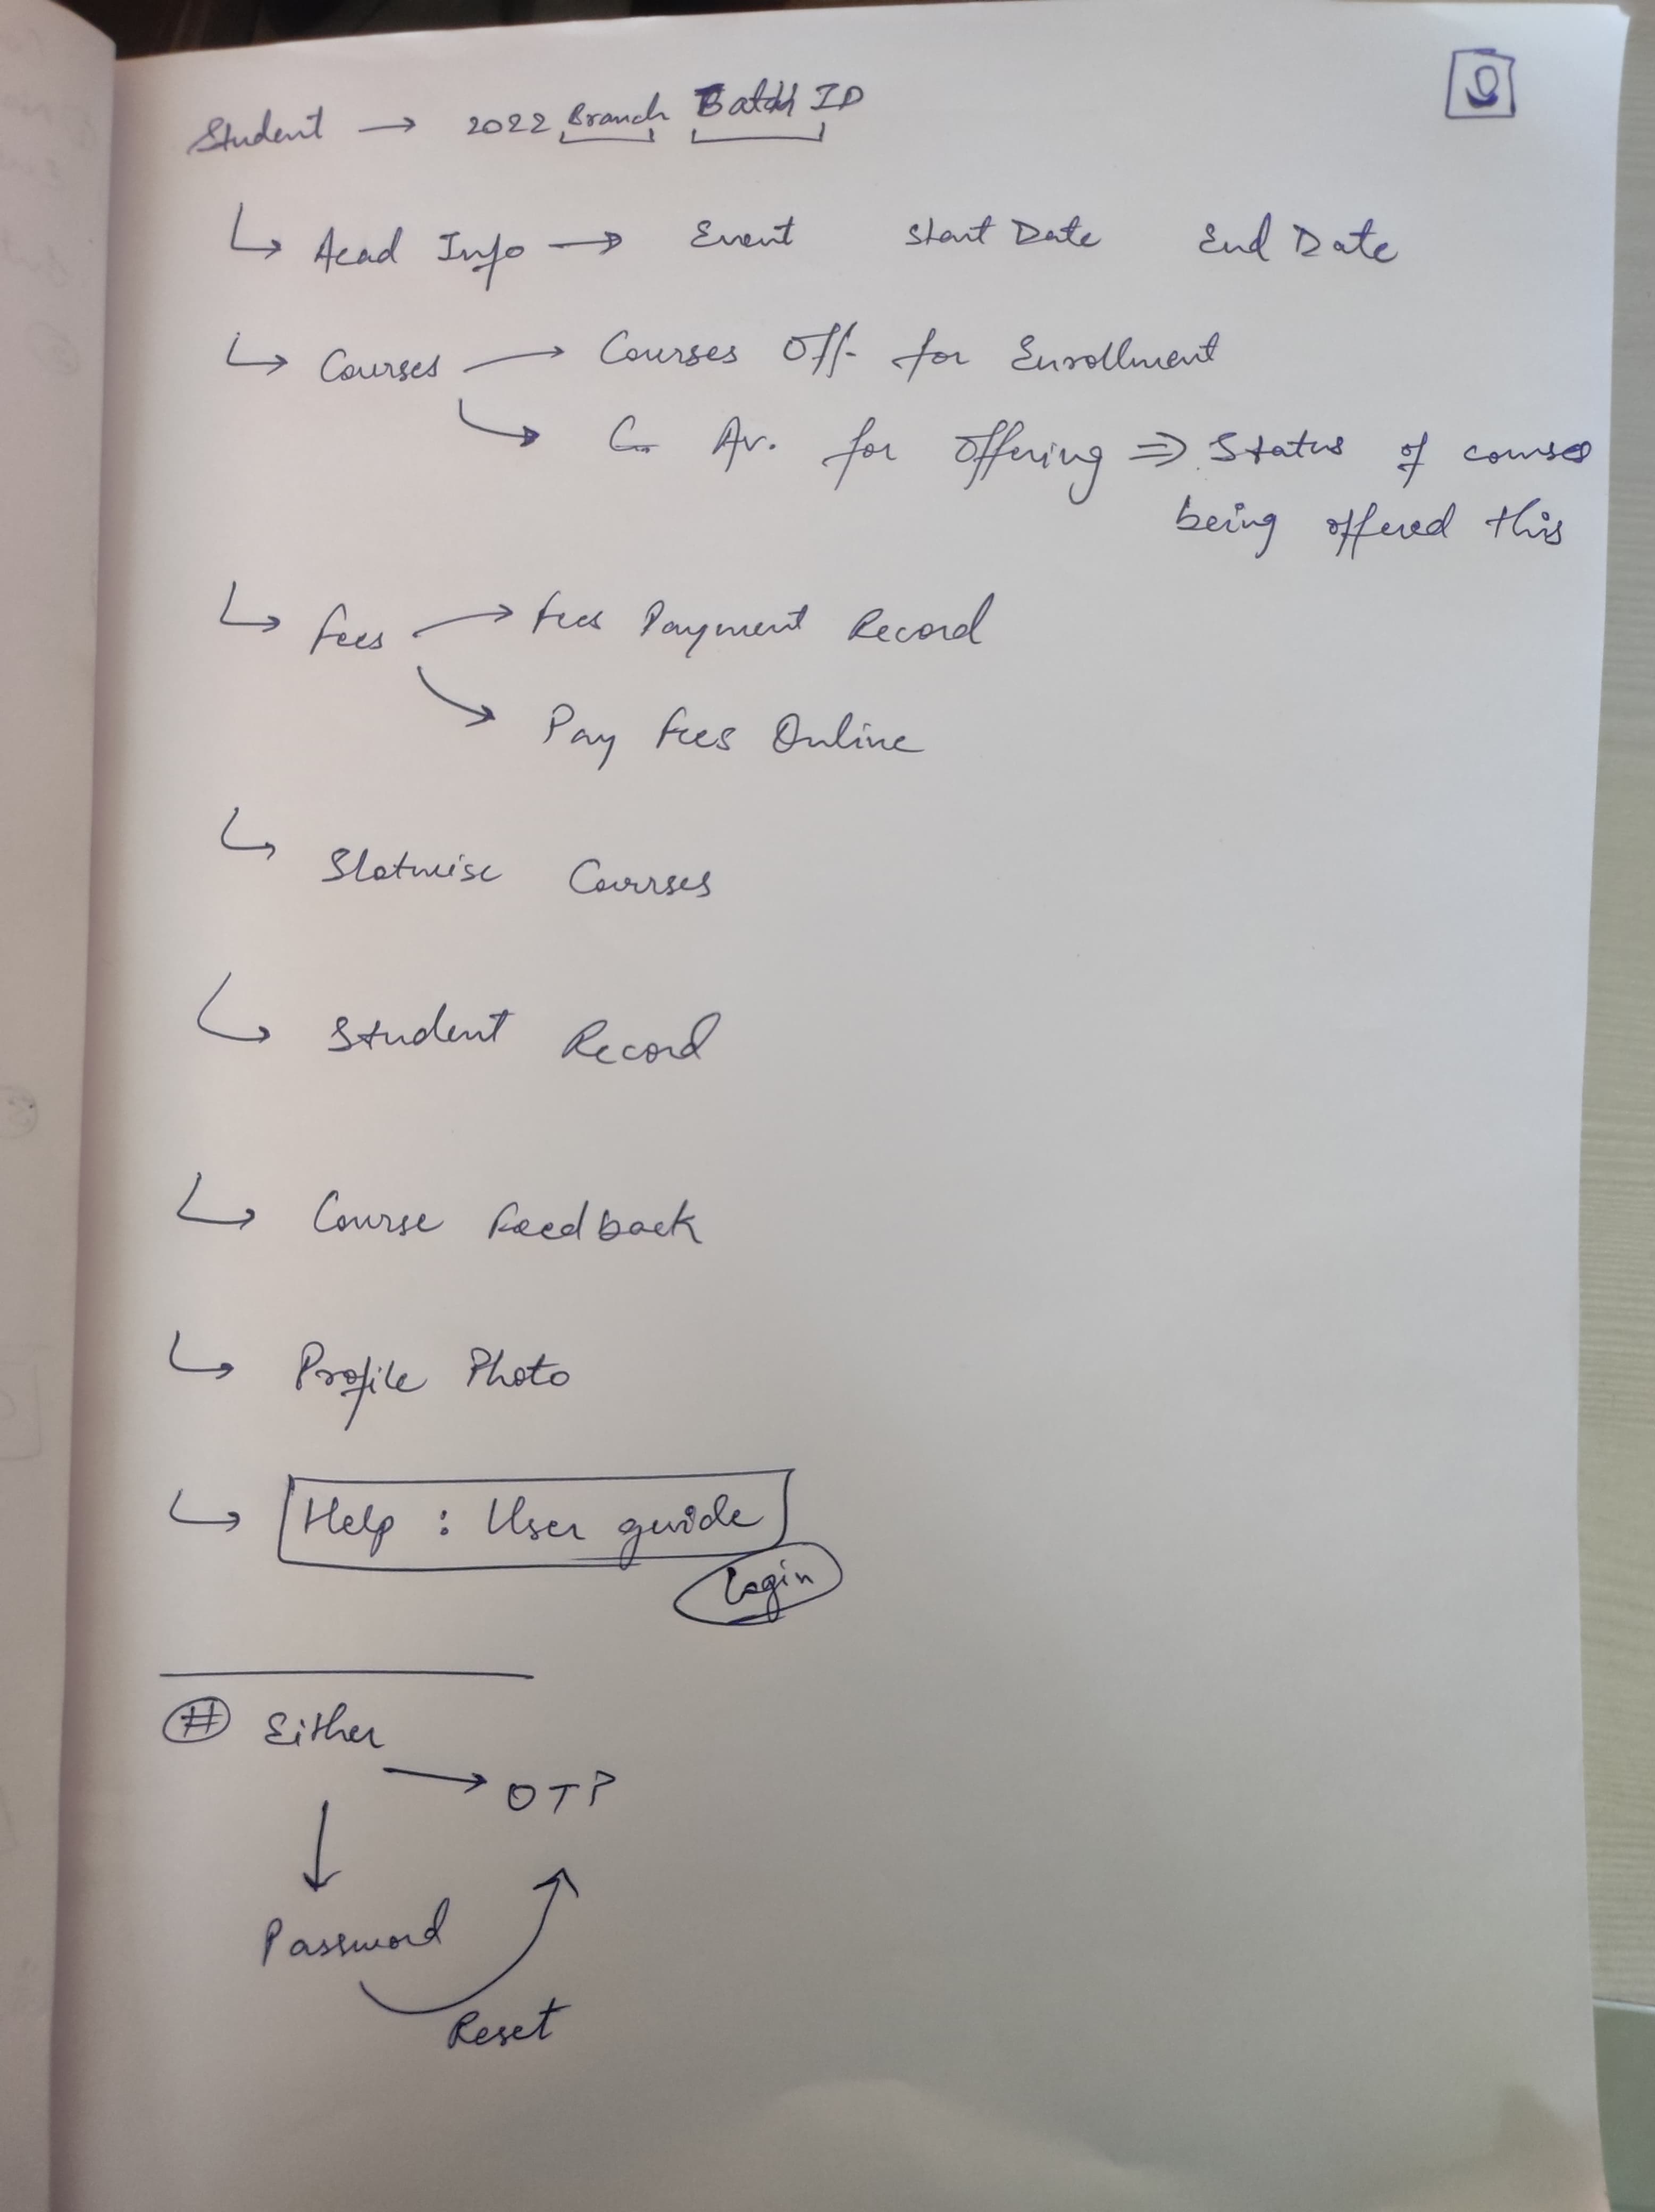 Student → 2022 Branch Batch ID
↳ Acad Info → Event Start Date End Date
↳ Courses → Courses Off. for Enrollment
↳ C. Av. for Offering ⇒ Status of courses
being offered this
↳ Fees → Fees Payment Record
↘ Pay Fees Online
↳ Slotwise Courses
↳ Student Record
↳ Course Feedback
↳ Profile Photo
↳ Help : User guide
Login
# Either
→ OTP
↓
Password
Reset